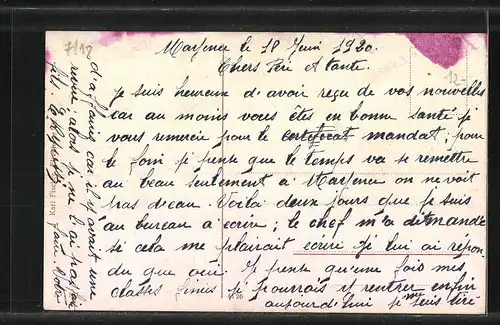 Mayence le 18 Juin 1920.
Chers Père et Tante.
Je suis heureux d'avoir reçu de vos nouvelles
car au moins vous êtes en bonne santé je
vous remercie pour le certificat mandat; pour
le foin je pense que le temps va se remettre
au beau seulement a Mayence on ne voit
pas d'eau. Voilà deux jours que je suis
au bureau a écrire; le chef m'a demandé
si cela me plairait écrire je lui ai répon-
du que oui. Je pense qu'une fois mes
classes finies je pourrais y rentrer enfin
aujourd'hui je me suis tiré
d'affaire car il y avait une
revue alors je ne l'ai pas
fait. votre
7/12
12-